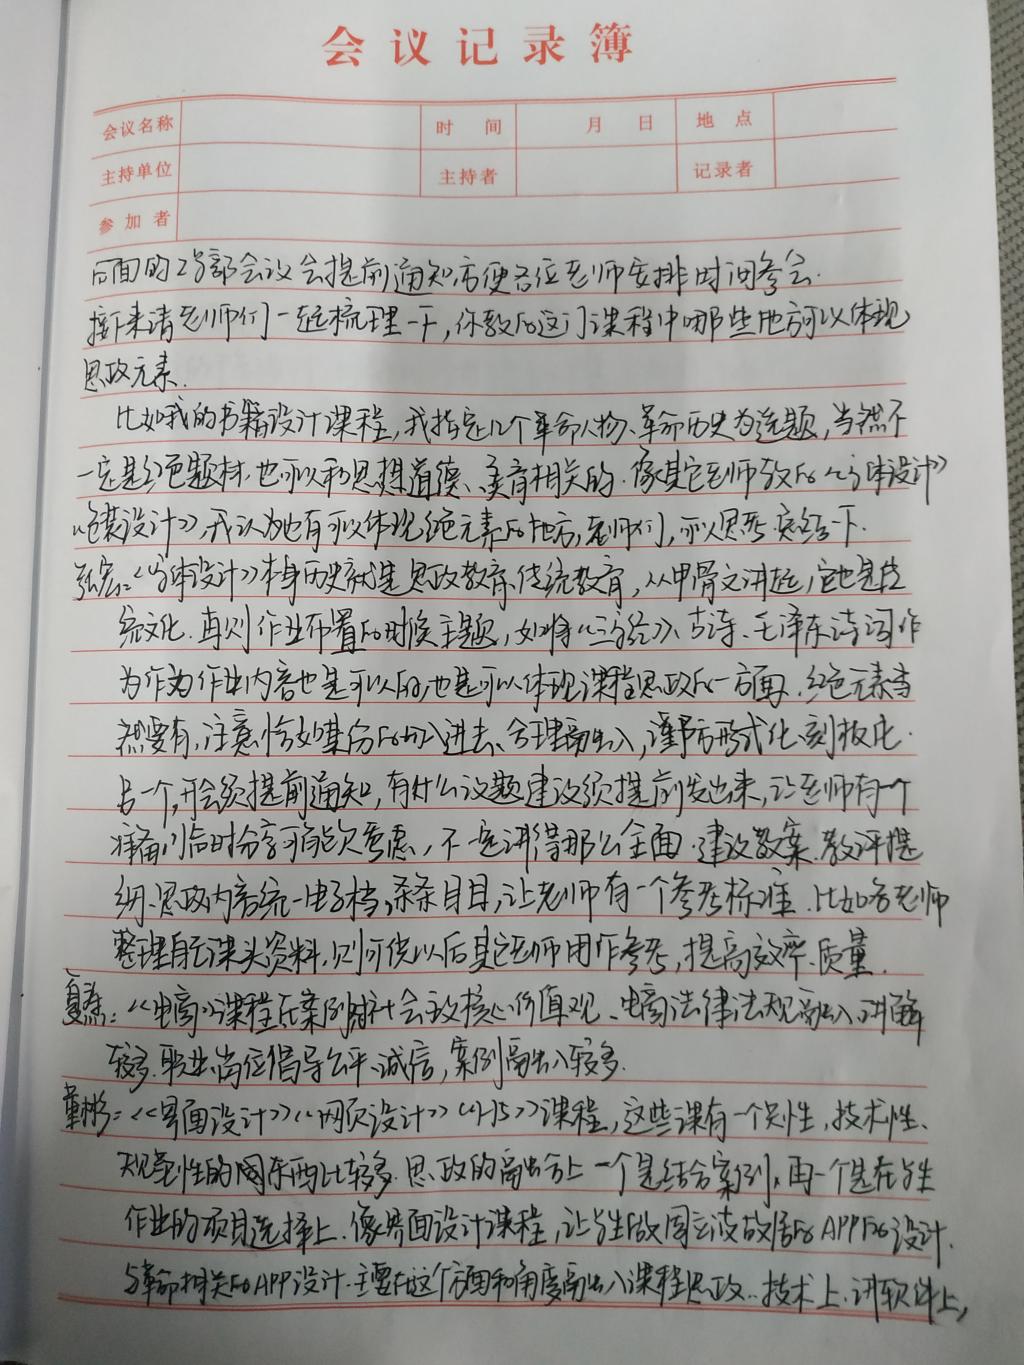 会议记录簿
会议名称 时 间 月 日 地 点
主持单位 主持者 记录者
参加者
后面的学部会议会提前通知,方便各位老师安排时间参会.
接下来请老师们一起梳理一下,你教的这门课程中哪些地方可以体现
思政元素.
比如我的书籍设计课程,我指定几个革命人物、革命历史为选题,当然不
一定是红色题材,也可以和思想道德、美育相关的.像其它老师教的《字体设计》
《包装设计》,我认为也有可以体现红色元素的地方,老师们,可以思考总结一下.
《字体设计》本身历史就是思政教育、传统教育,从甲骨文讲起,它也是传
统文化.再则作业布置的时候主题,如将《三字经》、古诗、毛泽东诗词作
为作为作业内容也是可以的,也是可以体现课程思政的一方面.红色元素当
然要有,注意恰如其份的加入进去、合理融入,谨防形式化、刻板化.
另一个,开会须提前通知,有什么议题建议须提前发出来,让老师有一个
准备,临时分享可能欠考虑,不一定讲得那么全面.建议教案、教评提
纲、思政内容统一电子档,条条目目,让老师有一个参考标准.比如各老师
整理自己课头资料,则可供以后其它老师用作参考,提高效率、质量.
《电商》课程在案例 社会主义核心价值观、电商法律法规融入、讲解
较多.职业、岗位倡导公平、诚信,案例融入较多.
董彬:《界面设计》《网页设计》《H5》课程,这些课有一个共性,技术性、
规范性的 东西比较多.思政的融合上一个是结合案例,再一个是在学生
作业的项目选择上.像界面设计课程,让学生做周立波故居的APP的设计.
与革命相关的APP设计.主要在这个方面和角度融入课程思政.技术上.讲软件上,